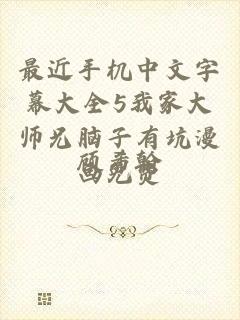 最近手机中文字
幕大全5我家大
师兄脑子有坑漫
画免费